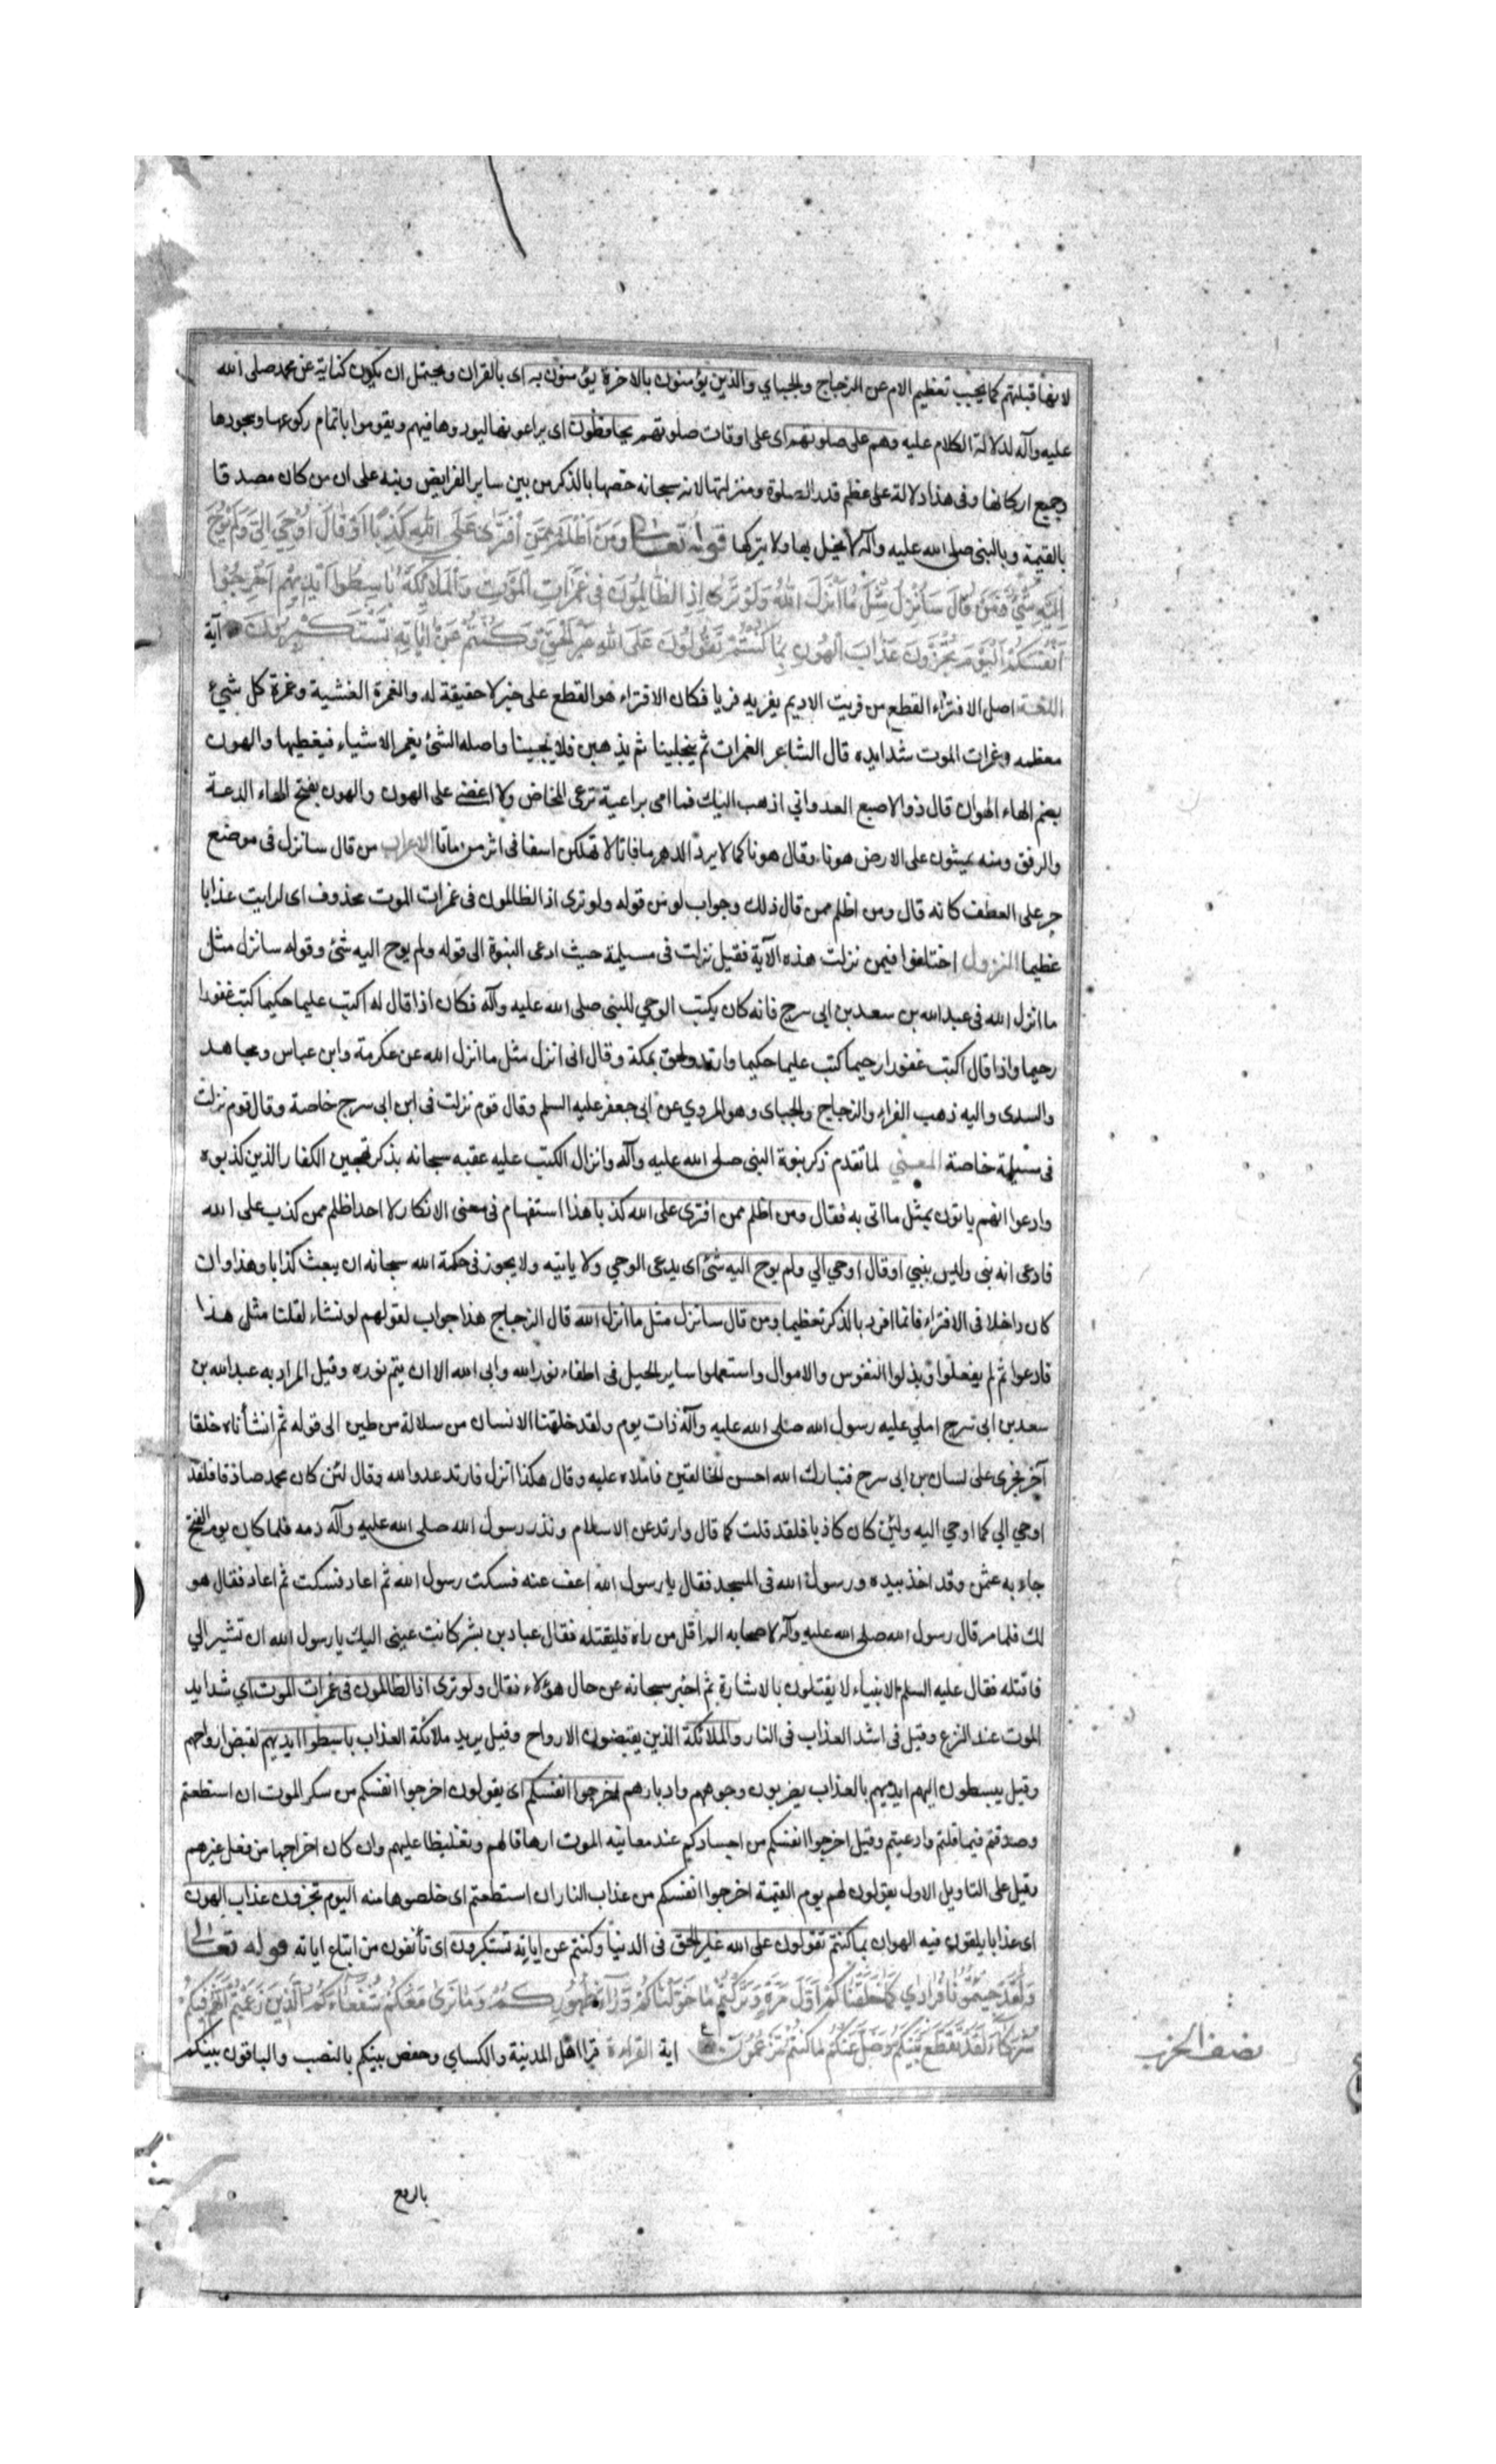 لانها قبلتهم كما يجب تعظيم الام عن الزجاج والجباي والذين يؤمنون بالاخرة يؤمنون به اى بالقران ويحتمل ان يكون كناية عن محمد صلى الله
عليه وآله لدلالة الكلام عليه وهم على صلوتهم اى على اوقات صلوتهم يحافظون اى يراعونها ليودوها فيهم ويقوموا باتمام ركوعها وسجودها
وجميع اركانها وفى هذا دلالة على عظم قدر الصلوة ومنزلتها لانه سبحانه خصها بالذكر من بين ساير الفرايض ونبه على ان من كان مصدقا
بالقيمة وبالنبى صلى الله عليه وآله لا يخل بها ولا يتركها قوله تعالى ومن اظلم ممن افترى على الله كذبا او قال اوحي الي ولم يوح
اليه شئ ومن قال سانزل مثل ما انزل الله ولو ترى اذ الظالمون فى غمرات الموت والملائكة باسطوا ايديهم اخرجوا
انفسكم اليوم تجزون عذاب الهون بما كنتم تقولون على الله غير الحق وكنتم عن اياته تستكبرون آية
اللغة اصل الافتراء القطع من فريت الاديم يفريه فريا فكان الافتراء هو القطع على خبر لا حقيقة له والغمرة الغشية وغمرة كل شيء
معظمه وغمرات الموت شدايده قال الشاعر الغمرات ثم ينجلينا ثم يذهبن فلا يجينا واصله الشئ يغمر الاشياء فيغطيها والهون
بضم الهاء الهوان قال ذو الاصبع العدواني اذهب اليك فما امى براعية ترعى المخاض ولا اغضى على الهون والهون بفتح الهاء الدعة
والرفق ومنه يمشون على الارض هونا وقال هونا كما لا يرد الدهر مافاتا لا تهلكن اسفا فى اثر من ماتا الاعراب من قال سانزل فى موضع
جر على العطف كانه قال ومن اظلم ممن قال ذلك وجواب لو من قوله ولو ترى اذ الظالمون فى غمرات الموت محذوف اى لرايت عذابا
عظيما النزول اختلفوا فيمن نزلت هذه الآية فقيل نزلت فى مسيلمة حيث ادعى النبوة الى قوله ولم يوح اليه شئ وقوله سانزل مثل
ما انزل الله فى عبد الله بن سعد بن ابى سرح فانه كان يكتب الوحي للنبى صلى الله عليه وآله فكان اذا قال له اكتب عليما حكيما كتب غفورا
رحيما واذا قال اكتب غفورا رحيما كتب عليما حكيما وارتد ولحق بمكة وقال انى انزل مثل ما انزل الله عن عكرمة وابن عباس ومجاهد
والسدى واليه ذهب الفراء والزجاج والجباى وهو المروي عن ابى جعفر عليه السلم وقال قوم نزلت فى ابن ابى سرح خاصة وقال قوم نزلت
فى مسيلمة خاصة المعنى لما تقدم ذكر نبوة النبى صلى الله عليه وآله وانزال الكتب عليه عقبه سبحانه بذكر تهجين الكفار الذين كذبوه
وادعوا انهم ياتون بمثل ما اتى به فقال ومن اظلم ممن افترى على الله كذبا هذا استفهام فى معنى الانكار لا احد اظلم ممن كذب على الله
فادعى انه نبى وليس بنبي او قال اوحي الي ولم يوح اليه شئ اى يدعى الوحي ولا ياتيه ولا يجوز فى حكمة الله سبحانه ان يبعث كذابا وهذا وان
كان داخلا فى الافتراء فانما افرد بالذكر تعظيما ومن قال سانزل مثل ما انزل الله قال الزجاج هذا جواب لقولهم لو نشاء لقلنا مثل هذا
فادعوا ثم لم يفعلوا وبذلوا النفوس والاموال واستعملوا ساير الحيل فى اطفاء نور الله وابى الله الا ان يتم نوره وقيل المراد به عبد الله بن
سعد بن ابى سرح املي عليه رسول الله صلى الله عليه وآله ذات يوم ولقد خلقنا الانسان من سلالة من طين الى قوله ثم انشأناه خلقا
آخر فجرى على لسان بن ابى سرح فتبارك الله احسن الخالقين فاملاه عليه وقال هكذا انزل فارتد عدو الله وقال لئن كان محمد صادقا فلقد
اوحي الي كما اوحي اليه ولئن كان كاذبا فلقد قلت كما قال وارتد عن الاسلام ونذر رسول الله صلى الله عليه وآله دمه فلما كان يوم الفتح
جاء به عثمن وقد اخذ بيده ورسول الله فى المسجد فقال يا رسول الله اعف عنه فسكت رسول الله ثم اعاد فسكت ثم اعاد فقال هو
لك فلما مر قال رسول الله صلى الله عليه وآله لاصحابه الم اقل من راه فليقتله فقال عباد بن بشر كانت عينى اليك يا رسول الله ان تشير الي
فاقتله فقال عليه السلم الانبياء لا يقتلون بالاشارة ثم اخبر سبحانه عن حال هؤلاء فقال ولو ترى اذ الظالمون فى غمرات الموت اي شدايد
الموت عند النزع وقيل فى اشد العذاب فى النار والملائكة الذين يقبضون الارواح وقيل يريد ملائكة العذاب باسطوا ايديهم لقبض ارواحهم
وقيل يبسطون اليهم ايديهم بالعذاب يضربون وجوههم وادبارهم اخرجوا انفسكم اى يقولون اخرجوا انفسكم من سكر الموت ان استطعتم
وصدقتم فيما قلتم وادعيتم وقيل اخرجوا انفسكم من اجسادكم عند معاينه الموت ارهاقا لهم وتغليظا عليهم وان كان اخراجها من فعل غيرهم
وقيل على التاويل الاول يقولون لهم يوم القيمة اخرجوا انفسكم من عذاب النار ان استطعتم اى خلصوها منه اليوم تجزون عذاب الهون
اى عذابا يلقون فيه الهوان بما كنتم تقولون على الله غير الحق فى الدنيا وكنتم عن اياته تستكبرون اى تأنفون من اتباع اياته قوله تعالى
ولقد جئتمونا فرادى كما خلقناكم اول مرة وتركتم ما خولناكم وراء ظهوركم وما نرى معكم شفعاءكم الذين زعمتم انهم فيكم
شركاء لقد تقطع بينكم وضل عنكم ما كنتم تزعمون اية القراءة قرا اهل المدينة والكساي وحفص بينكم بالنصب والباقون بينكم
نصف الحزب
بالرفع